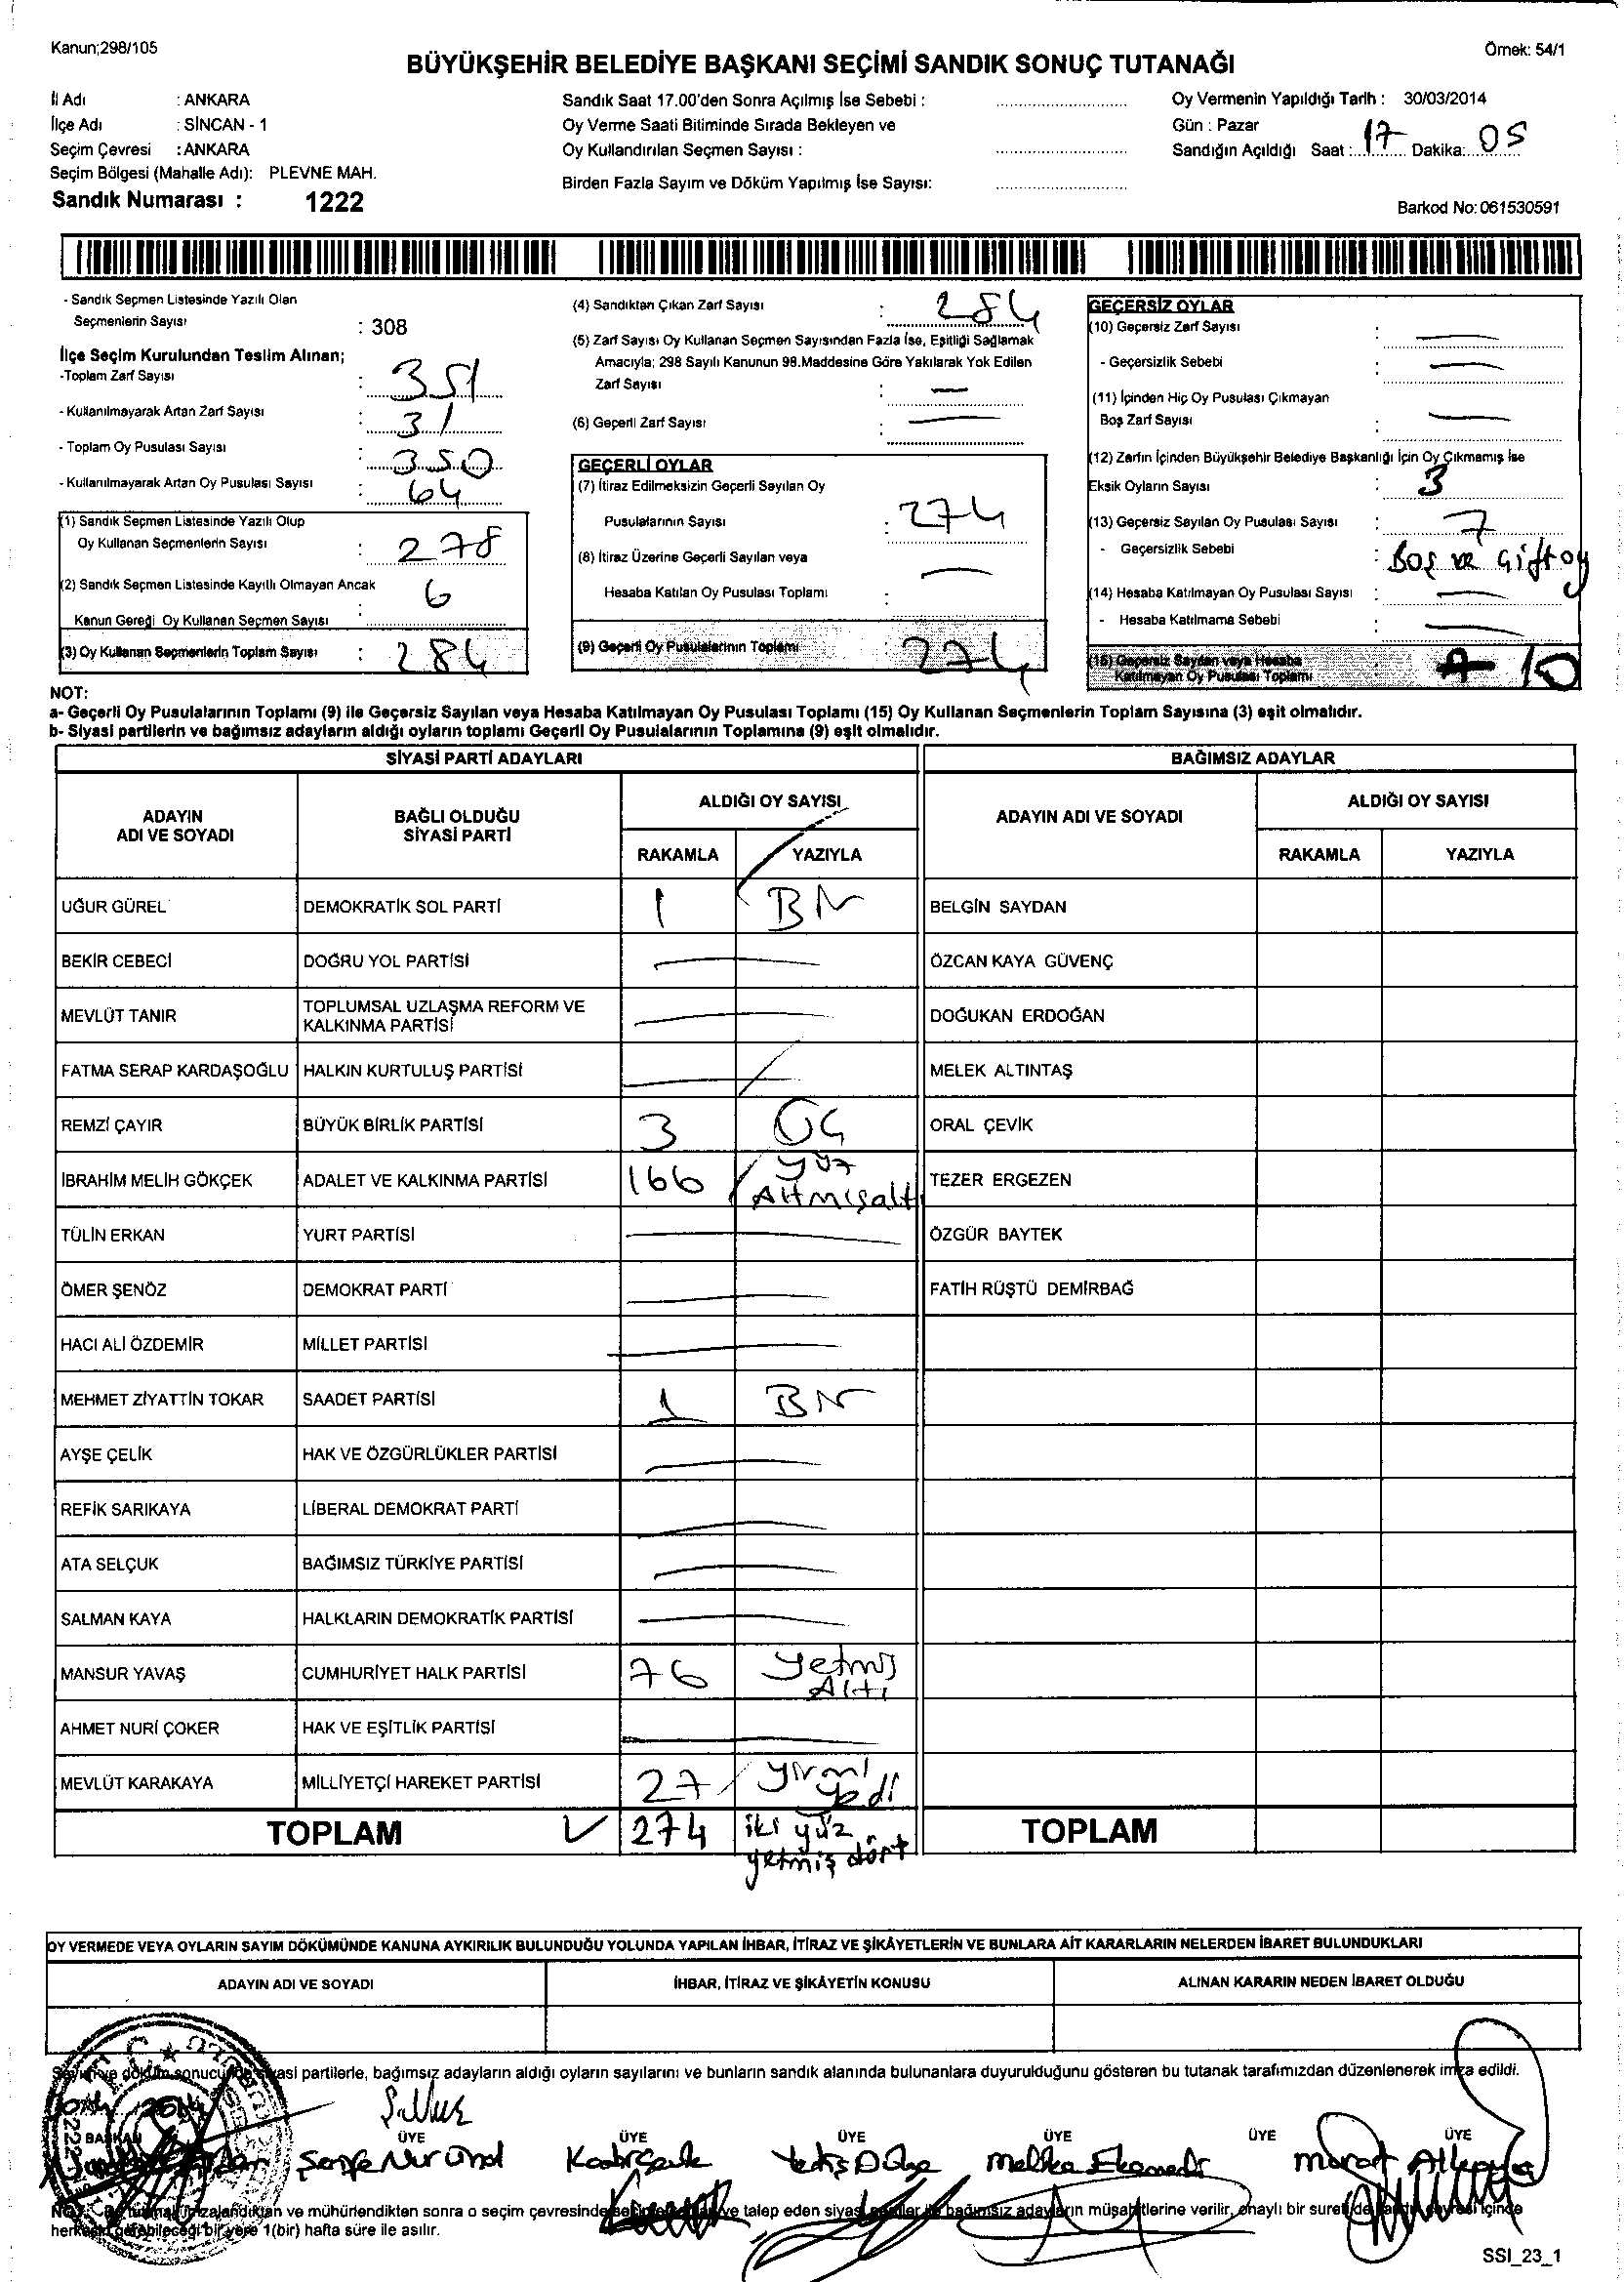 Kanun;298/105
Örnek: 54/1
BÜYÜKŞEHİR BELEDİYE BAŞKANI SEÇİMİ SANDIK SONUÇ TUTANAĞI
İl Adı : ANKARA
İlçe Adı : SİNCAN - 1
Seçim Çevresi : ANKARA
Seçim Bölgesi (Mahalle Adı): PLEVNE MAH.
Sandık Numarası : 1222
Sandık Saat 17.00'den Sonra Açılmış İse Sebebi :
Oy Verme Saati Bitiminde Sırada Bekleyen ve
Oy Kullandırılan Seçmen Sayısı :
Birden Fazla Sayım ve Döküm Yapılmış İse Sayısı:
Oy Vermenin Yapıldığı Tarih : 30/03/2014
Gün : Pazar
Sandığın Açıldığı Saat : 17 Dakika: 05
Barkod No: 061530591
- Sandık Seçmen Listesinde Yazılı Olan
Seçmenlerin Sayısı : 308
İlçe Seçim Kurulundan Teslim Alınan;
-Toplam Zarf Sayısı : 351
- Kullanılmayarak Artan Zarf Sayısı : 31
- Toplam Oy Pusulası Sayısı : 350
- Kullanılmayarak Artan Oy Pusulası Sayısı : 64
(1) Sandık Seçmen Listesinde Yazılı Olup
Oy Kullanan Seçmenlerin Sayısı : 278
(2) Sandık Seçmen Listesinde Kayıtlı Olmayan Ancak
Kanun Gereği Oy Kullanan Seçmen Sayısı : 6
(3) Oy Kullanan Seçmenlerin Toplam Sayısı : 284
(4) Sandıktan Çıkan Zarf Sayısı : 284
(5) Zarf Sayısı Oy Kullanan Seçmen Sayısından Fazla İse, Eşitliği Sağlamak
Amacıyla; 298 Sayılı Kanunun 98.Maddesine Göre Yakılarak Yok Edilen
Zarf Sayısı : —
(6) Geçerli Zarf Sayısı : —
GEÇERLİ OYLAR
(7) İtiraz Edilmeksizin Geçerli Sayılan Oy
Pusulalarının Sayısı : 274
(8) İtiraz Üzerine Geçerli Sayılan veya
Hesaba Katılan Oy Pusulası Toplamı : —
(9) Geçerli Oy Pusulalarının Toplamı : 274
GEÇERSİZ OYLAR
(10) Geçersiz Zarf Sayısı : —
- Geçersizlik Sebebi : —
(11) İçinden Hiç Oy Pusulası Çıkmayan
Boş Zarf Sayısı : —
(12) Zarfın İçinden Büyükşehir Belediye Başkanlığı İçin Oy Çıkmamış İse
Eksik Oyların Sayısı : 3
(13) Geçersiz Sayılan Oy Pusulası Sayısı : 7
- Geçersizlik Sebebi : Boş ve Çift oy
(14) Hesaba Katılmayan Oy Pusulası Sayısı : —
- Hesaba Katılmama Sebebi : —
(15) Geçersiz Sayılan veya Hesaba
Katılmayan Oy Pusulası Toplamı : 10
NOT:
a- Geçerli Oy Pusulalarının Toplamı (9) ile Geçersiz Sayılan veya Hesaba Katılmayan Oy Pusulası Toplamı (15) Oy Kullanan Seçmenlerin Toplam Sayısına (3) eşit olmalıdır.
b- Siyasi partilerin ve bağımsız adayların aldığı oyların toplamı Geçerli Oy Pusulalarının Toplamına (9) eşit olmalıdır.
SİYASİ PARTİ ADAYLARI BAĞIMSIZ ADAYLAR
ADAYIN ADI VE SOYADI BAĞLI OLDUĞU SİYASİ PARTİ ALDIĞI OY SAYISI ADAYIN ADI VE SOYADI ALDIĞI OY SAYISI
RAKAMLA YAZIYLA RAKAMLA YAZIYLA
UĞUR GÜREL DEMOKRATİK SOL PARTİ 1 Bir BELGİN SAYDAN
BEKİR CEBECİ DOĞRU YOL PARTİSİ — ÖZCAN KAYA GÜVENÇ
MEVLÜT TANIR TOPLUMSAL UZLAŞMA REFORM VE KALKINMA PARTİSİ — DOĞUKAN ERDOĞAN
FATMA SERAP KARDAŞOĞLU HALKIN KURTULUŞ PARTİSİ — MELEK ALTINTAŞ
REMZİ ÇAYIR BÜYÜK BİRLİK PARTİSİ 3 ÜÇ ORAL ÇEVİK
İBRAHİM MELİH GÖKÇEK ADALET VE KALKINMA PARTİSİ 166 yüz Altmışaltı TEZER ERGEZEN
TÜLİN ERKAN YURT PARTİSİ — ÖZGÜR BAYTEK
ÖMER ŞENÖZ DEMOKRAT PARTİ — FATİH RÜŞTÜ DEMİRBAĞ
HACI ALİ ÖZDEMİR MİLLET PARTİSİ —
MEHMET ZİYATTİN TOKAR SAADET PARTİSİ 1 Bir
AYŞE ÇELİK HAK VE ÖZGÜRLÜKLER PARTİSİ —
REFİK SARIKAYA LİBERAL DEMOKRAT PARTİ —
ATA SELÇUK BAĞIMSIZ TÜRKİYE PARTİSİ —
SALMAN KAYA HALKLARIN DEMOKRATİK PARTİSİ —
MANSUR YAVAŞ CUMHURİYET HALK PARTİSİ 76 yetmiş Altı
AHMET NURİ ÇOKER HAK VE EŞİTLİK PARTİSİ —
MEVLÜT KARAKAYA MİLLİYETÇİ HAREKET PARTİSİ 27 yirmi yedi
TOPLAM 274 iki yüz yetmiş dört TOPLAM
OY VERMEDE VEYA OYLARIN SAYIM DÖKÜMÜNDE KANUNA AYKIRILIK BULUNDUĞU YOLUNDA YAPILAN İHBAR, İTİRAZ VE ŞİKÂYETLERİN VE BUNLARA AİT KARARLARIN NELERDEN İBARET BULUNDUKLARI
ADAYIN ADI VE SOYADI İHBAR, İTİRAZ VE ŞİKÂYETİN KONUSU ALINAN KARARIN NEDEN İBARET OLDUĞU
Sayım ve döküm sonucunda siyasi partilerle, bağımsız adayların aldığı oyların sayılarını ve bunların sandık alanında bulunanlara duyurulduğunu gösteren bu tutanak tarafımızdan düzenlenerek imza edildi.
BAŞKAN ÜYE ÜYE ÜYE ÜYE ÜYE ÜYE
Nur Ünal
Murat
ve mühürlendikten sonra o seçim çevresinde ve talep eden siyasi partiler ile bağımsız adayların müşahitlerine verilir, onaylı bir sureti de içinde
herkesin görebileceği bir yere 1(bir) hafta süre ile asılır.
SSI_23_1